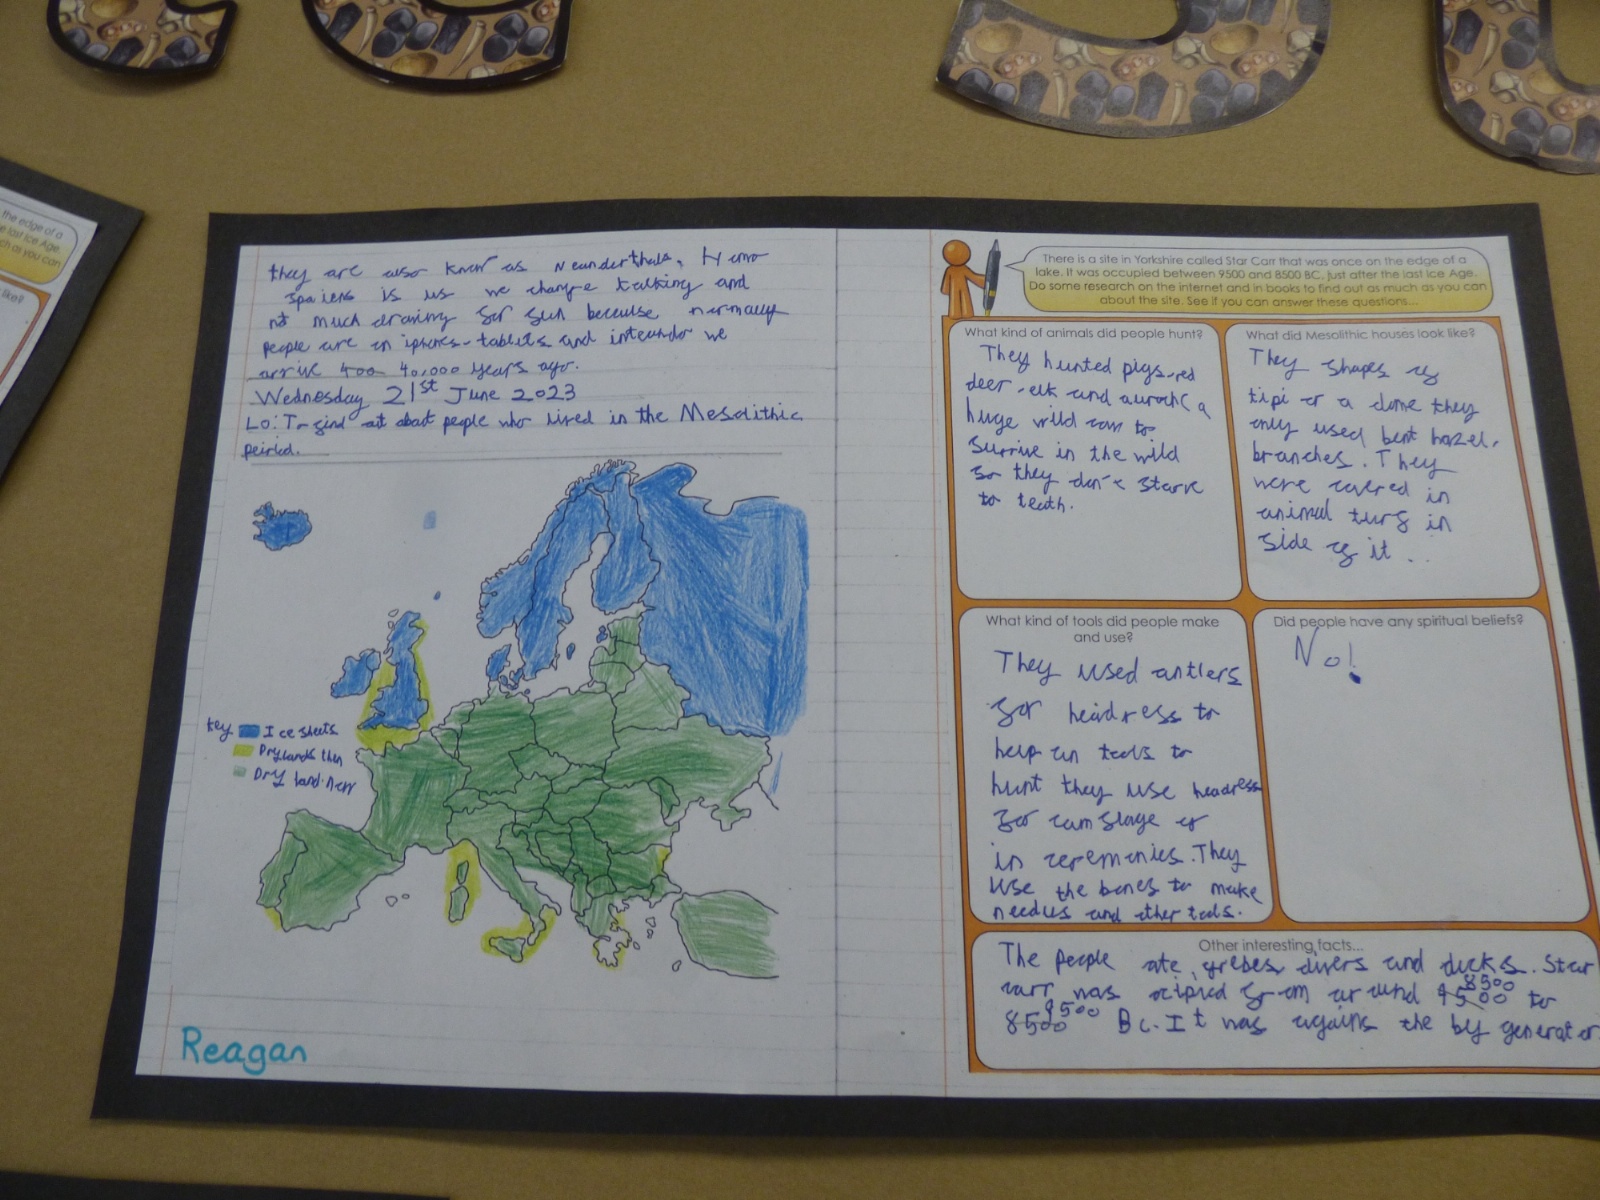 the edge of a
last Ice Age.
as you can
like?
they are also know as Neanderthals. Homo
Spaiens is us we change talking and
not much drawing for fun because normally
people are on iphones-tablets and we
arrive 400 40,000 years ago.
Wednesday 21st June 2023
Lo: To find out about people who lived in the Mesolithic
peirled.
key Ice sheets
Dry lands then
Dry land now
Reagan
There is a site in Yorkshire called Star Carr that was once on the edge of a
lake. It was occupied between 9500 and 8500 BC, just after the last Ice Age.
Do some research on the internet and in books to find out as much as you can
about the site. See if you can answer these questions...
What kind of animals did people hunt?
They hunted pigs-red
deer-elk and auroch( a
huge wild cow to
surrive in the wild
so they don't starve
to teath.
What did Mesolithic houses look like?
They shapes of
tipi or a dome they
only used bent hazel.
branches. They
were covered in
animal furs in
side of it ..
What kind of tools did people make
and use?
They used antlers
for headress to
help on tools to
hunt they use headress
for camflage or
in ceremonies. They
use the bones to make
needles and other tools.
Did people have any spiritual beliefs?
No!
Other interesting facts...
The people ate, grebes, divers and ducks. Star
carr was ocipied from around 9500 8500 to
8500 9500 Bc. It was agains the by generator.